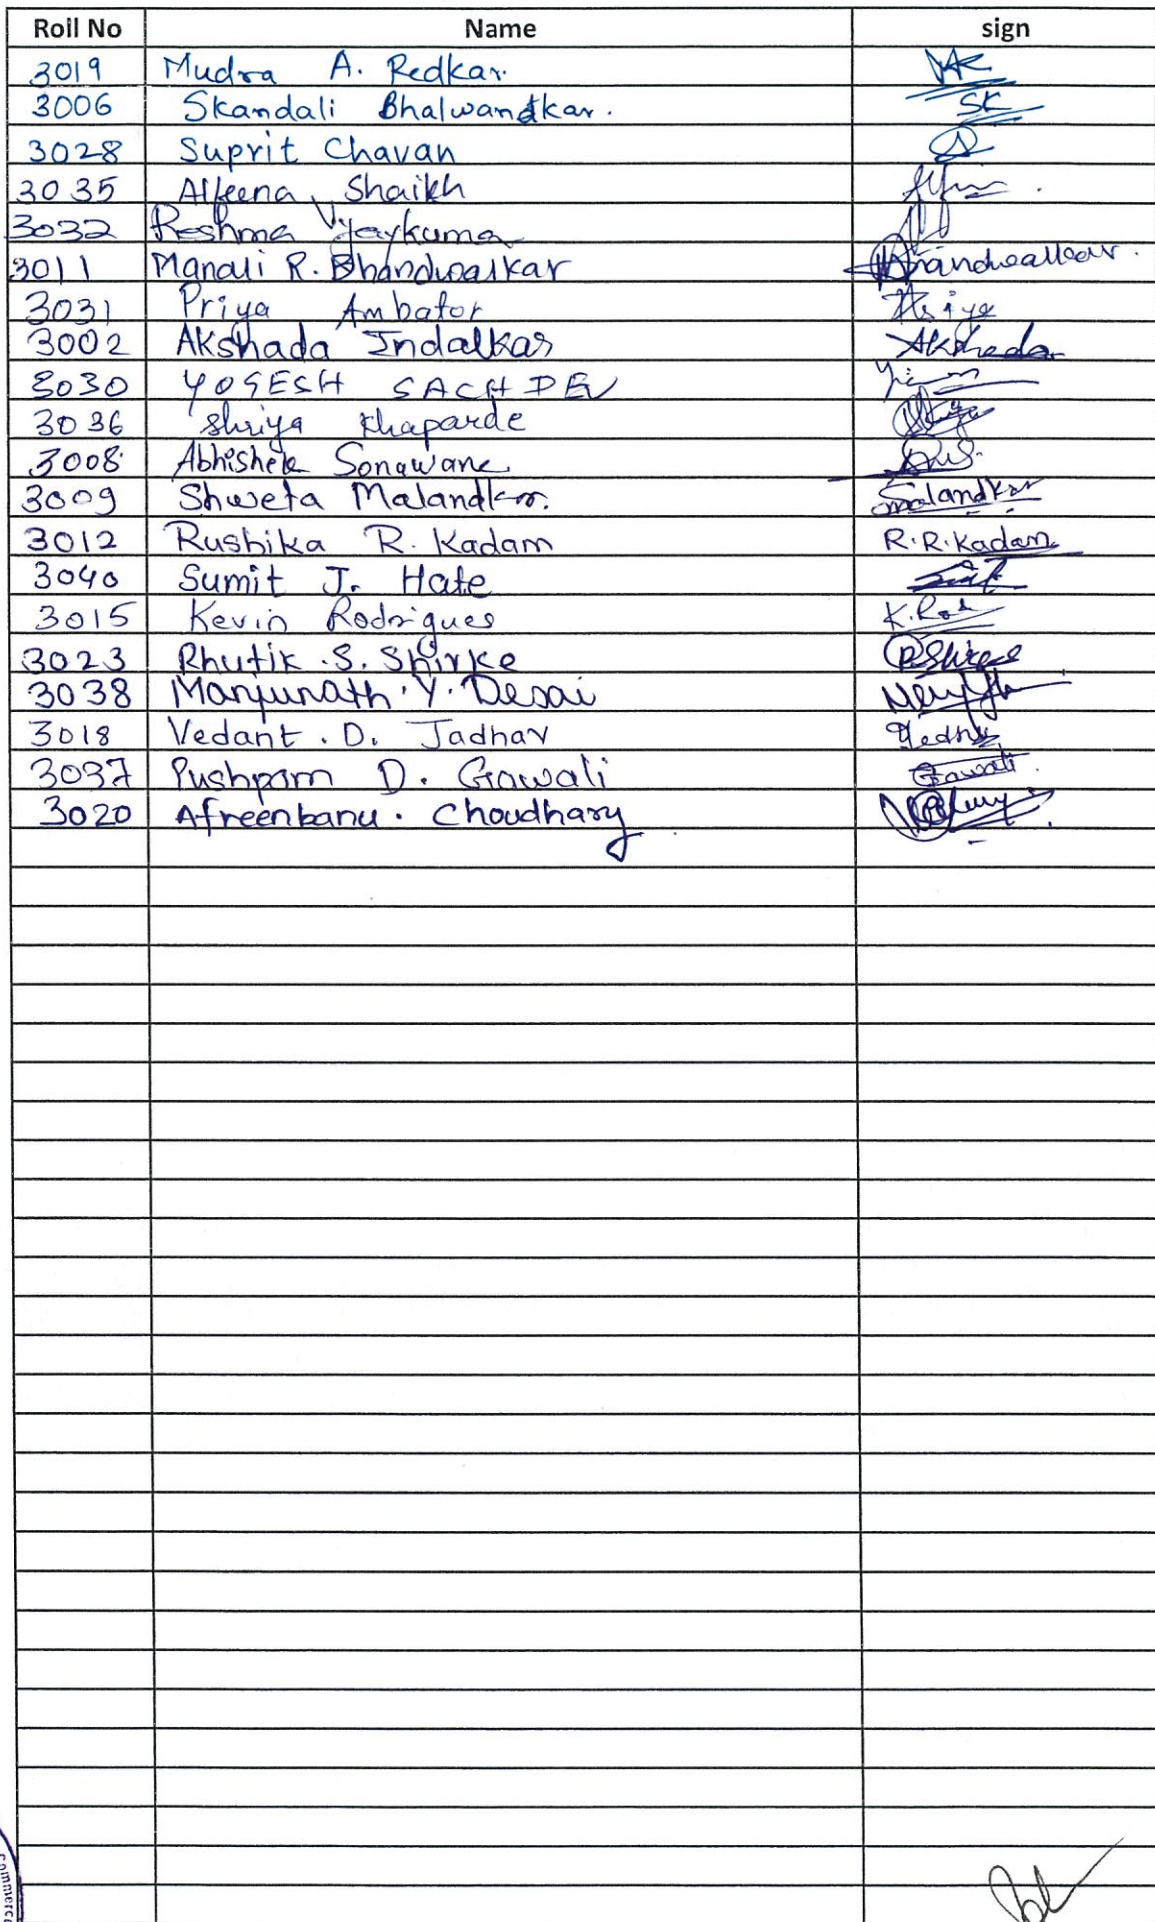 Roll No Name sign
3019 Mudra A. Redkar.
3006 Skandali Bhalwandkar. SK
3028 Suprit Chavan
3035 Alfeena Shaikh
3032 Reshma Vijaykuma
3011 Manali R. Bhandwalkar
3031 Priya Ambator Priya
3002 Akshada Indalkar Akshada
3030 YOGESH SACHDEV
3036 Shriya Khaparde
3008 Abhishek Sonawane
3009 Shweta Malandkar. Smalandkar
3012 Rushika R. Kadam R.R.Kadam
3040 Sumit J. Hate
3015 Kevin Rodrigues K.Rod
3023 Rhutik .S. Shirke
3038 Manjunath .Y. Desai
3018 Vedant . D. Jadhav
3037 Pushpam D. Gawali Gawali
3020 Afreenbanu . Choudhary
Commerce